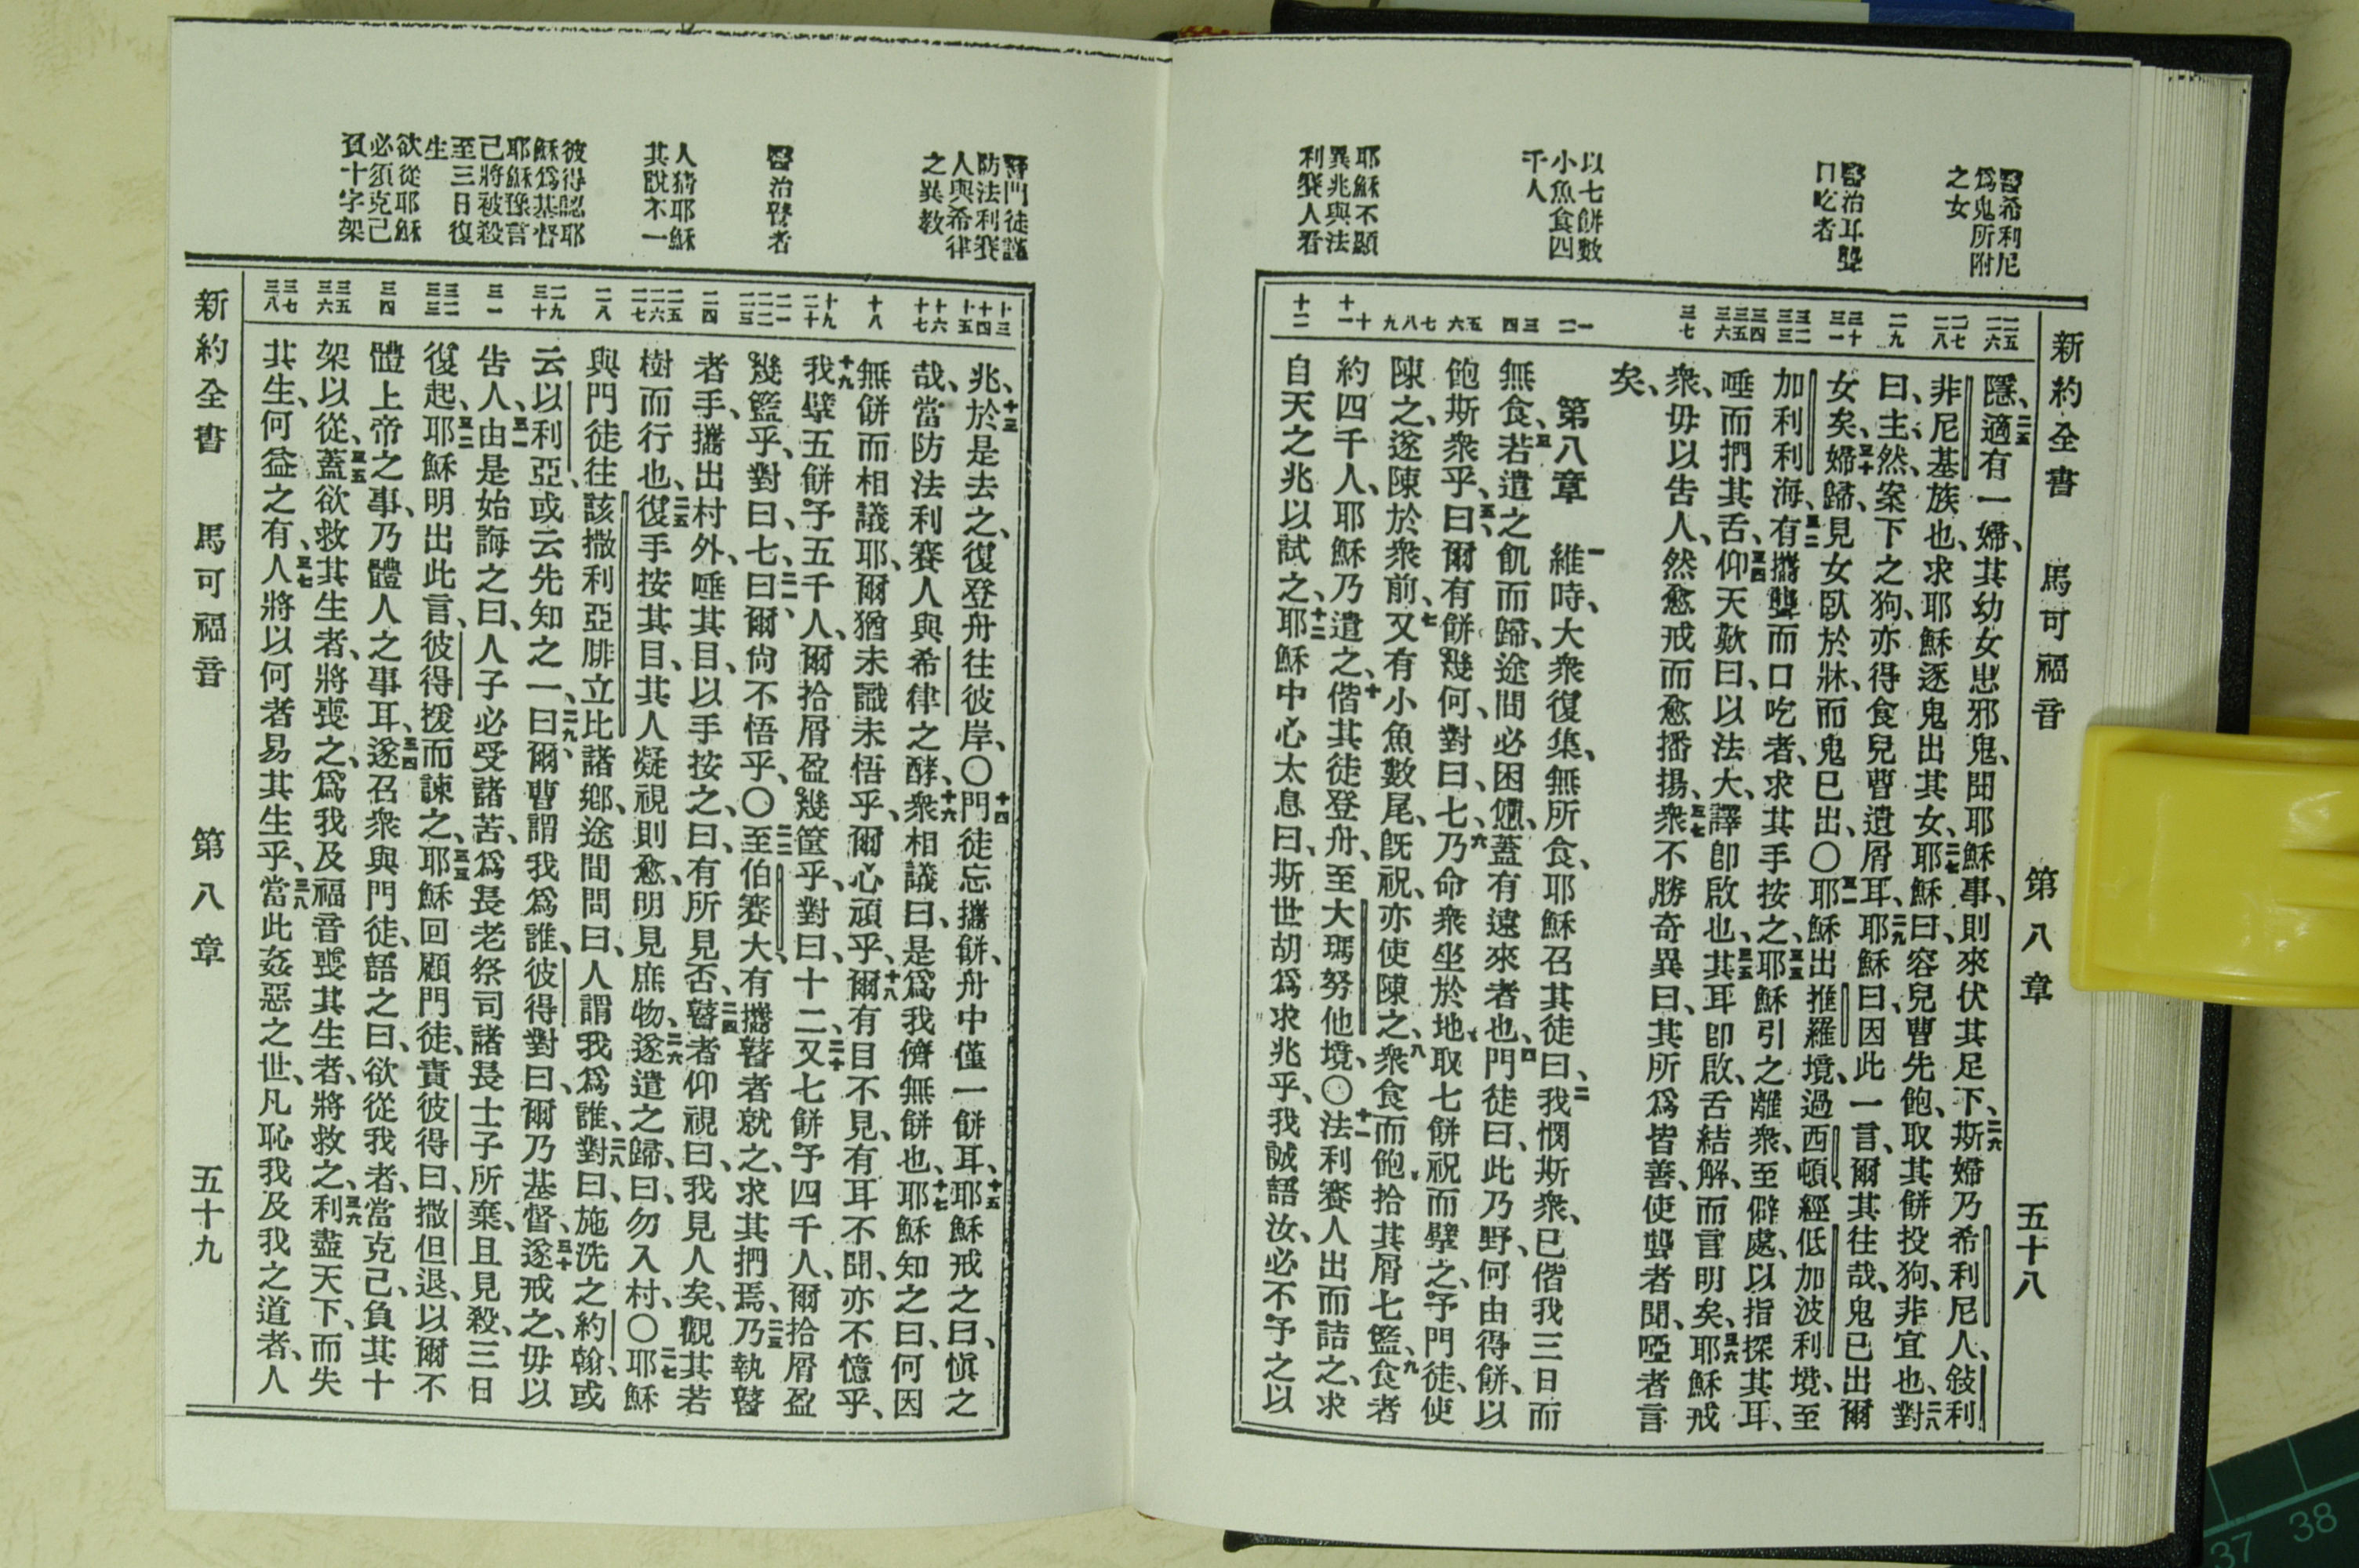 新約全書 馬可福音 第八章 五十八
醫希利尼
爲鬼所附
之女
醫治耳聾
口吃者
以七餅數
小魚食四
千人
耶穌不顯
異兆與法
利賽人看
二五 二六
二七 二八
二九
三十 三一
三二 三三
三四 三五 三六
三七
一 二
三 四
五 六
七 八 九
十 十一
十二
隱、二五適有一婦、其幼女患邪鬼、聞耶穌事、則來伏其足下、二六斯婦乃希利尼人、敍利
非尼基族也、求耶穌逐鬼出其女、二七耶穌曰、容兒曹先飽、取其餅投狗、非宜也、二八對
曰、主、然、案下之狗、亦得食兒曹遺屑耳、二九耶穌曰、因此一言、爾其往哉、鬼已出爾
女矣、三十婦歸、見女臥於牀、而鬼已出、〇三一耶穌出推羅境、過西頓、經低加波利境、至
加利利海、三二有攜聾而口吃者、求其手按之、三三耶穌引之離衆、至僻處、以指探其耳、
唾而捫其舌、三四仰天歎曰、以法大、譯卽啟也、三五其耳卽啟、舌結解、而言明矣、三六耶穌戒
衆、毋以告人、然愈戒而愈播揚、三七衆不勝奇異曰、其所爲皆善、使聾者聞、啞者言
矣、
第八章 一維時、大衆復集、無所食、耶穌召其徒曰、二我憫斯衆、已偕我三日而
無食、三若遣之飢而歸、途間必困憊、蓋有遠來者也、四門徒曰、此乃野、何由得餅、以
飽斯衆乎、五曰、爾有餅幾何、對曰、七、六乃命衆坐於地、取七餅祝而擘之、予門徒、使
陳之、遂陳於衆前、七又有小魚數尾、旣祝、亦使陳之、八衆食而飽、拾其屑七籃、九食者
約四千人、耶穌乃遣之、十偕其徒登舟、至大瑪努他境、〇十一法利賽人出而詰之、求
自天之兆以試之、十二耶穌中心太息曰、斯世胡爲求兆乎、我誠語汝、必不予之以
醫門徒謹
防法利賽
人與希律
之異教
醫治瞽者
人猜耶穌
其說不一
彼得認耶
穌爲基督
耶穌豫言
己將被殺
至三日復
生
欲從耶穌
必須克己
負十字架
十三 十四 十五
十六 十七
十八
十九 二十
二一 二二 二三
二四
二五 二六 二七
二八
二九 三十
三一
三二 三三
三四
三五 三六
三七 三八
兆、十三於是去之、復登舟往彼岸、〇十四門徒忘攜餅、舟中僅一餅耳、十五耶穌戒之曰、愼之
哉、當防法利賽人與希律之酵、十六衆相議曰、是爲我儕無餅也、十七耶穌知之曰、何因
無餅而相議耶、爾猶未識未悟乎、爾心頑乎、十八爾有目不見、有耳不聞、亦不憶乎、
十九我擘五餅予五千人、爾拾屑盈幾筐乎、對曰、十二、二十又七餅予四千人、爾拾屑盈
幾籃乎、對曰、七、二一曰、爾尙不悟乎、〇二二至伯賽大、有攜瞽者就之、求其捫焉、二三乃執瞽
者手、攜出村外、唾其目、以手按之、曰、有所見否、二四瞽者仰視曰、我見人矣、觀其若
樹而行也、二五復手按其目、其人凝視則愈、明見庶物、二六遂遣之歸、曰、勿入村、〇二七耶穌
與門徒往該撒利亞腓立比諸鄉、途間問曰、人謂我爲誰、二八對曰、施洗之約翰、或
云以利亞、或云先知之一、二九曰、爾曹謂我爲誰、彼得對曰、爾乃基督、三十遂戒之、毋以
告人、三一由是始誨之曰、人子必受諸苦、爲長老祭司諸長士子所棄、且見殺、三日
復起、三二耶穌明出此言、彼得援而諫之、三三耶穌回顧門徒、責彼得曰、撒但退、以爾不
體上帝之事、乃體人之事耳、三四遂召衆與門徒、語之曰、欲從我者、當克己、負其十
架以從、三五蓋欲救其生者、將喪之、爲我及福音喪其生者、將救之、三六利盡天下、而失
其生、何益之有、三七人將以何者易其生乎、三八當此姦惡之世、凡恥我及我之道者、人
新約全書 馬可福音 第八章 五十九
37 38